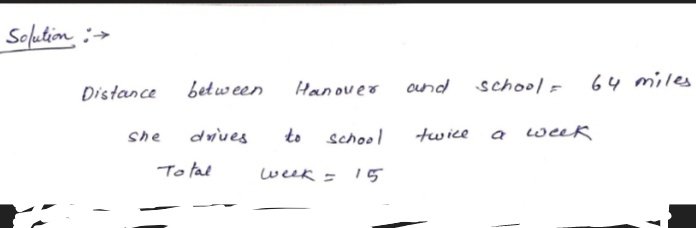 Solution :→
Distance between Hanover and school = 64 miles
she drives to school twice a week
Total week = 15